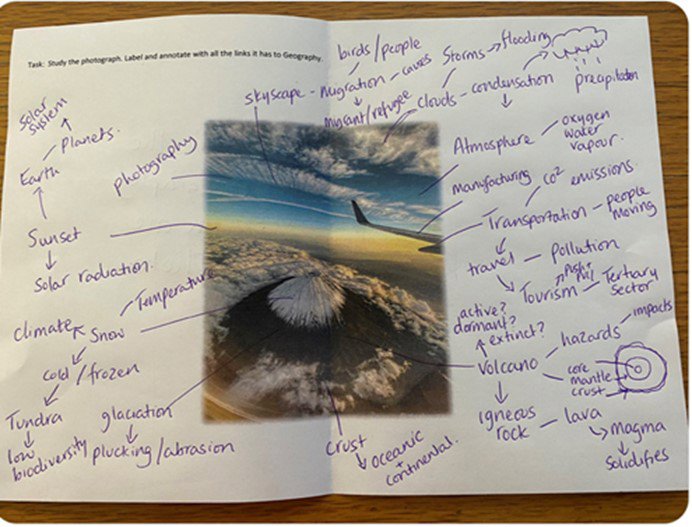 Task: Study the photograph. Label and annotate with all the links it has to Geography.
birds/people
skyscape - migration - causes
migrant/refugee
Storms → flooding
clouds - condensation
precipitation
solar system
Planets.
Earth
Sunset
Solar radiation.
photography
Atmosphere
oxygen
water
vapour.
manufacturing
CO2 emissions
Transportation - people moving
travel - Pollution
push + pull
Tourism - Tertiary Sector
Temperature
Climate
Snow
cold / frozen
Tundra
low biodiversity
glaciation
plucking/abrasion
active?
dormant?
extinct?
Volcano
hazards
impacts
core
mantle
crust
Igneous rock - lava
magma
solidifies
crust
oceanic
+
continental.